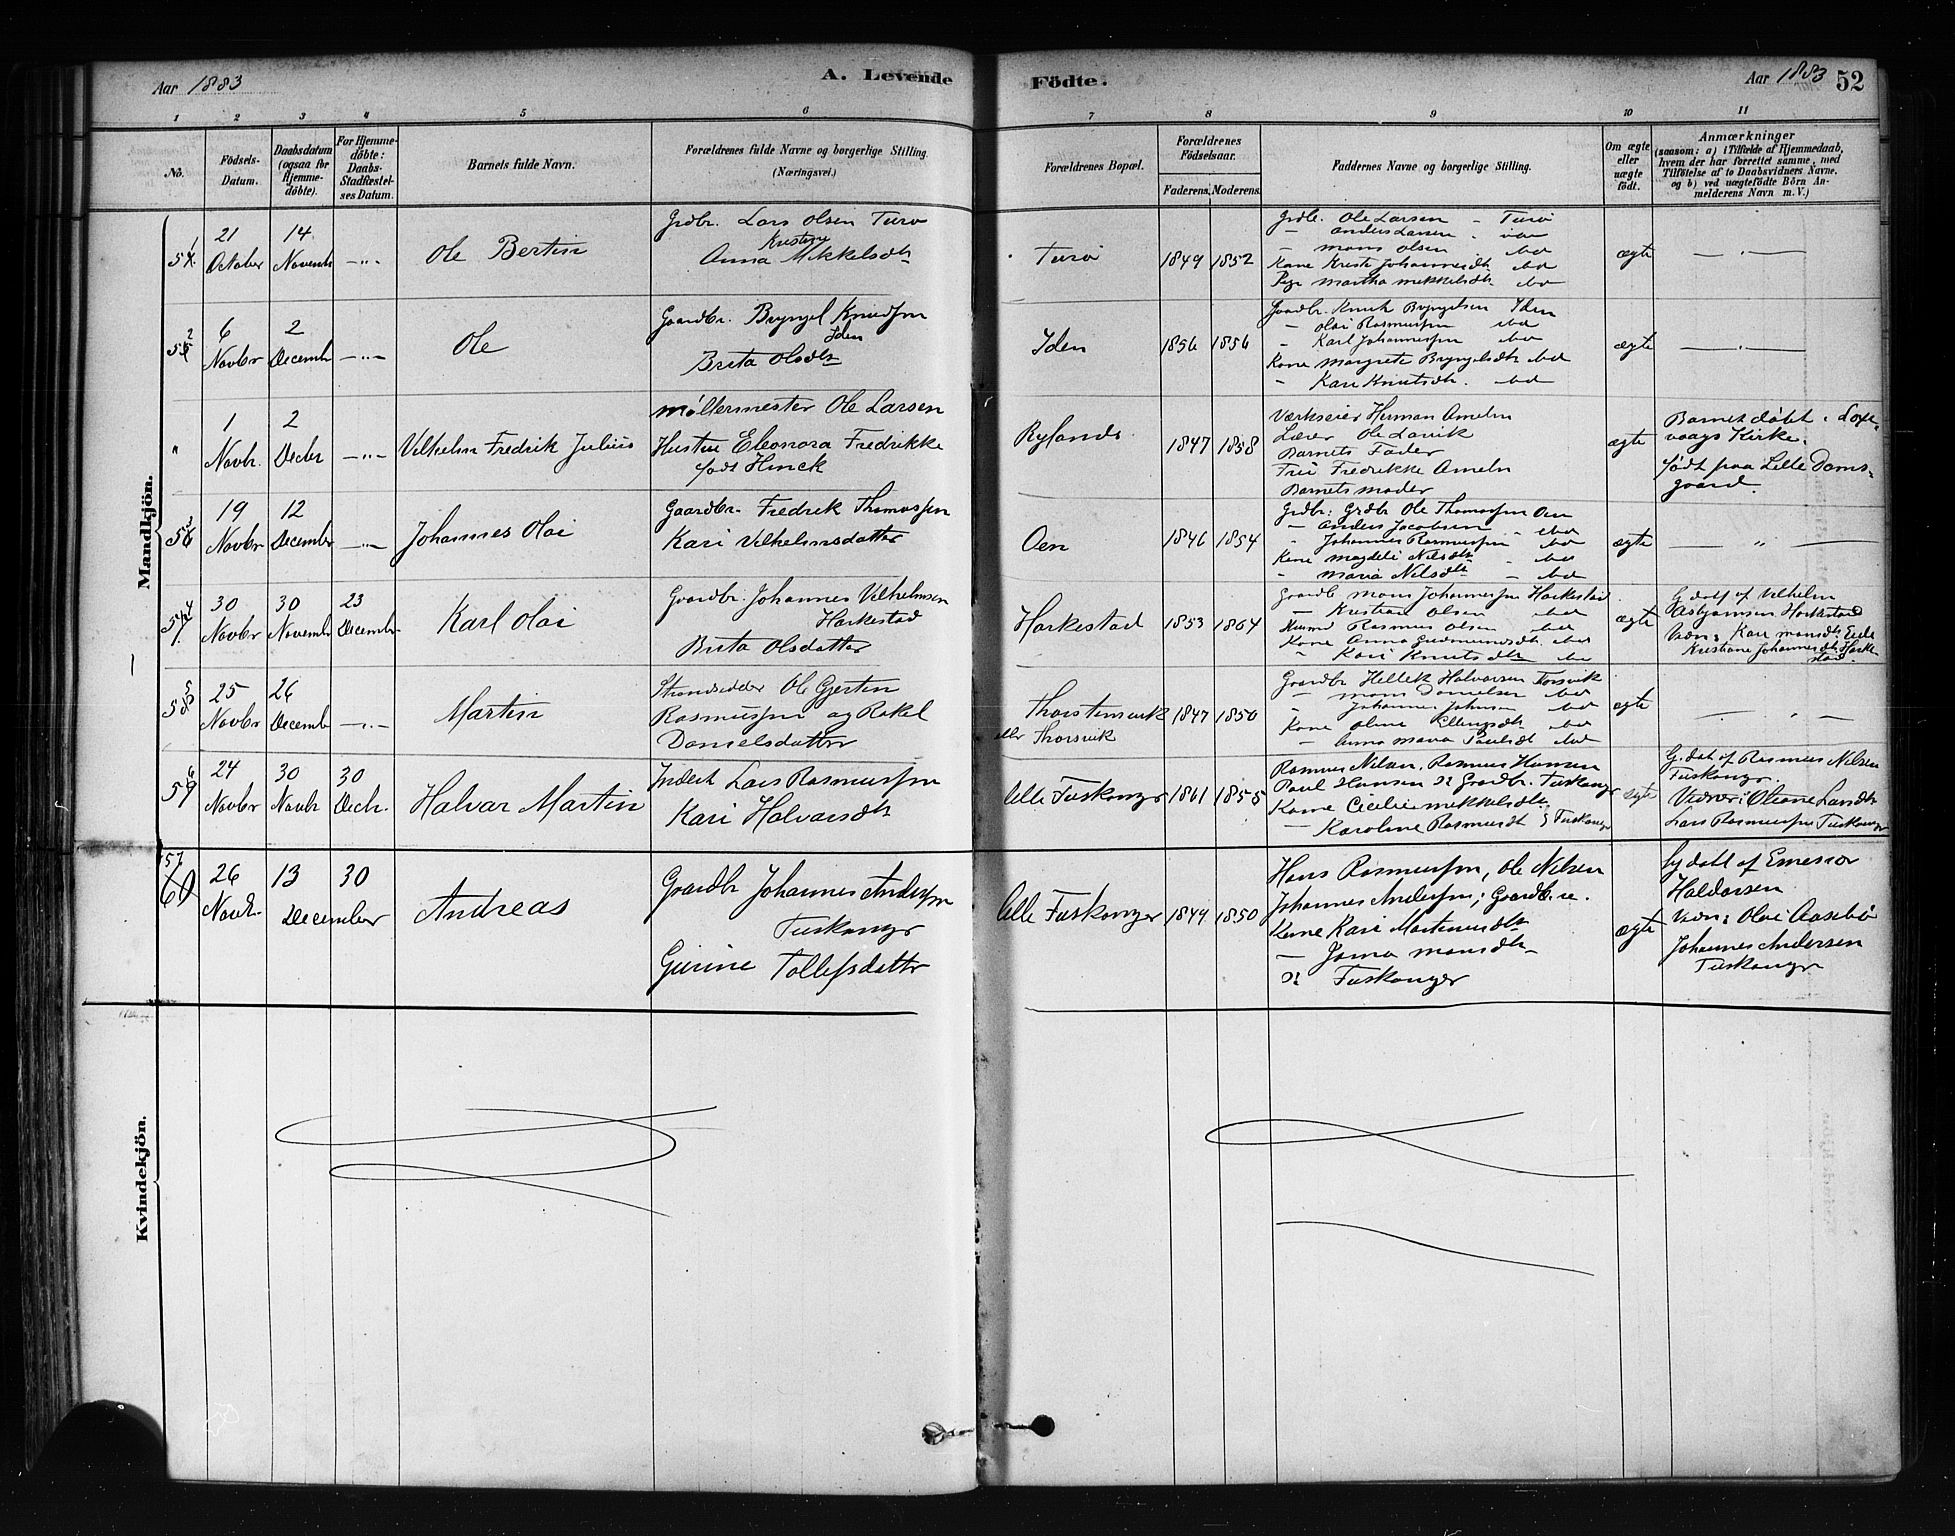 Aar 1883
A. Levende
Födte.
Aar 1883
52
1 2 3 4 5 6 7 8 9 10 11
No.
Födsels-Datum.
Daabsdatum (ogsaa för Hjemme-döbte).
For Hjemme-döbte: Daabs-Stadfæstel-ses Datum.
Barnets fulde Navn.
Forældrenes fulde Navne og borgerlige Stilling. (Næringsvei.)
Forældrenes Bopæl.
Forældrenes Födselsaar.
Faderens. Moderens.
Faddernes Navne og borgerlige Stilling.
Om ægte eller uægte födt.
Anmærkninger
(saasom: a) i Tilfælde af Hjemmedaab, hvem der har forrettet samme, med Tilföielse af to Daabsvidners Navne, og b) ved uægtefödte Börn An-melderens Navn m. V.)
Mandkjön.
21 October
14 Novemb
Ole Bertin
Grdbr. Lars Olsen Turø
Kristine
Anna Mikkelsdtr
Turø
1849 1852
Grdbr. Ole Larsen - Turø
- Anders Larsen - ibd
- Mons Olsen ibd
Kone Kriste Johannesdtr ibd
Pige Martha Mikkelsdtr ibd
ægte
6 Novbr
2 Decembr
Ole
Gaardbr. Bryngel Knudsen
Iden
Brita Olsdtr
Iden
1856 1856
Gaardbr. Knut Bryngelsen Iden
- Olai Rasmussen ibd
- Karl Johannessen ibd
Kone Margrete Bryngelsdtr ibd
- Kari Knutsdtr. ibd
ægte
"
1 Novbr.
2 Decbr
Vilhelm Fredrik Julius
Møllermester Ole Larsen
Hustru Eleonora Fredrikke
født Hinck
Rylands
1847 1858
Værkseier Herman Ameln
Lærer Ole Lavik
Barnets Fader
Fru Fredrikke Ameln
Barnets Moder
ægte
Barnet døbt i Laxe-
vaags Kirke.
født paa Lille Dams-
gaard.
19 Novbr
12 December
Johannes Olai
Gaardbr. Fredrik Thomassen
Kari Vilhelmsdatter
Oen
1846 1854
Grdbr: Grdbr Ole Thomassen Oen
- Anders Jacobsen - ibd
- Johannes Rasmussen ibd
Kone Magdeli Nilsdtr - ibd
- Maria Nilsdtr - ibd
ægte
30 Novbr
30 Novembr
23 December
Karl Olai
Gaardbr. Johannes Vilhelmsen
Harkestad
Brita Olsdatter
Harkestad
1853 1864
Gaardb Mons Johannessen Harkestad
- Kristian Olsen ibd
Rasmus Olsen ibd
Kone Anna Gudmundsdtr. ibd
- Kari Knutsdtr ibd
ægte
G. døbt af Vilhelm
Asbjørnsen Harkestad
Vidn: Kari Monsdtr Eide
Kristiane Johannesdtr Harke
stad.
25 Novbr
26 Decembr
Martin
Strandsidder Ole Gjertin
Rasmussen og Rakel
Danielsdatter
Thorstensvik
eller Thorsvik
1847 1850
Gaardbr Hellik Halvorsen Torsvik
- Mons Danielsen ibd
- Johannes Johnsen ibd
Kone Oline Ellingsdtr ibd
- Anna Maria Paulsdt ibd
ægte
24 Novbr
30 Novbr
30 Decbr.
Halvar Martin
Inderst Lars Rasmussen
Kari Halvarsdtr
Lille Tuskanger
1861 1855
Rasmus Nilsen, Rasmus Hansen
Paul Hansen Gaardbr. Tuskanger
Kone Cicilie Mikkelsdtr
- Karoline Rasmusdt Tuskanger
ægte
G. døbt af Rasmus Nilsen
Tuskanger.
Vidner: Oliane Larsdtr
Lars Rasmussen Tuskanger
57
60
26 Novbr.
13 December
30
Andreas
Gaardbr Johannes Andersen
Tuskanger
Gurine Tollefsdatter
Lille Tuskanger
1849 1850
Hans Rasmussen, Ole Nilsen
Johannes Andersen; Gaardbrne.
Kone Kari Martinusdtr
- Monsdtr
Tuskanger
ægte
Gj. døbt af
Haldorsen
Vidn: Olai Aasebø
Johannes Andersen
Tuskanger
Kvindekjön.